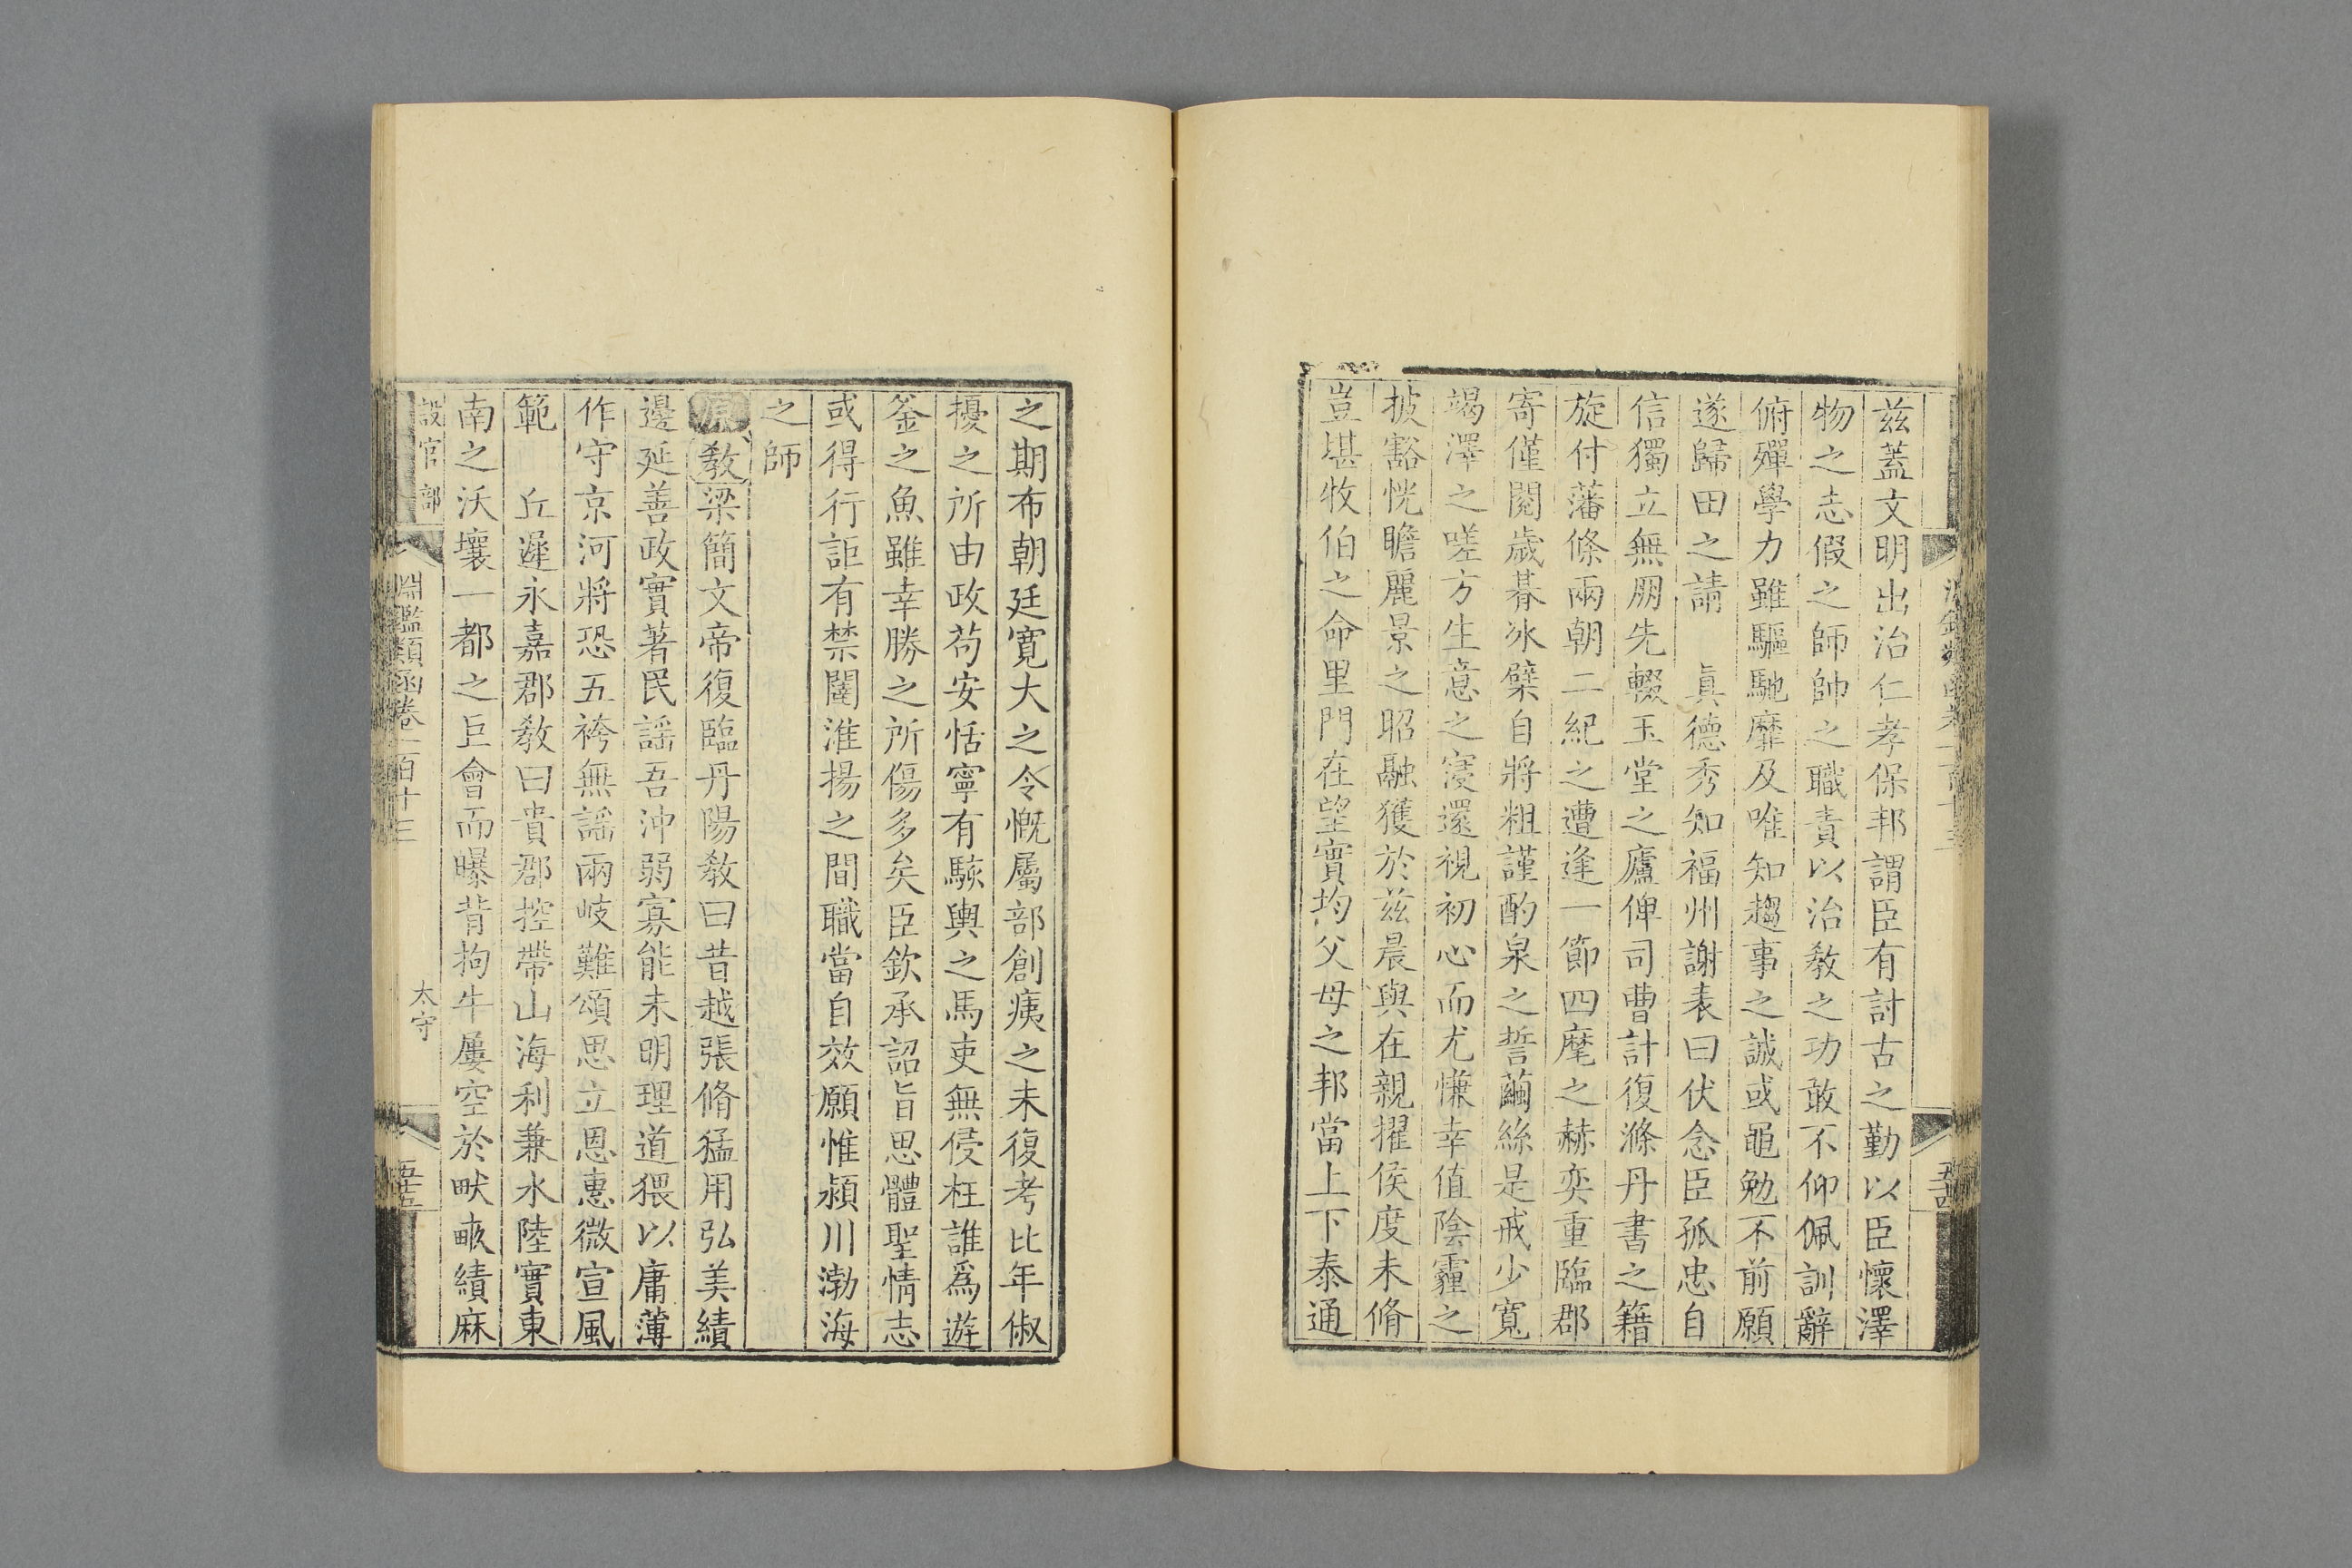 茲蓋文明出治仁孝保邦謂臣有討古之勤以臣懷澤
物之志假之師帥之職責以治教之功敢不仰佩訓辭
俯殫學力雖驅馳靡及唯知趨事之誠或黽勉不前願
遂歸田之請　眞德秀知福州謝表曰伏念臣孤忠自
信獨立無朋先輟玉堂之廬俾司曹計復滌丹書之籍
旋付藩條兩朝二紀之遭逢一節四麾之赫奕重臨郡
寄僅閱歲朞冰檗自將粗謹酌泉之誓繭絲是戒少寬
竭澤之嗟方生意之寖還視初心而尤慊幸值陰霾之
披豁恍瞻麗景之昭融獲於茲晨與在親擢侯度未脩
豈堪牧伯之命里門在望實均父母之邦當上下泰通
五十四
之期布朝廷寬大之令慨屬部創痍之未復考比年俶
擾之所由政苟安恬寧有駭輿之馬吏無侵枉誰爲遊
釜之魚雖幸勝之所傷多矣臣欽承詔旨思體聖情志
或得行詎有禁闥淮揚之間職當自效願惟潁川渤海
之師
原教梁簡文帝復臨丹陽教曰昔越張脩猛用弘美績
邊延善政實著民謡吾沖弱寡能未明理道猥以庸薄
作守京河將恐五袴無謡兩岐難頌思立恩惠微宣風
範　丘遲永嘉郡教曰貴郡控帶山海利兼水陸實東
南之沃壤一都之巨會而曝背拘牛屢空於畎畝績麻
設官部
淵鑑類函卷一百十三
太守
五十五